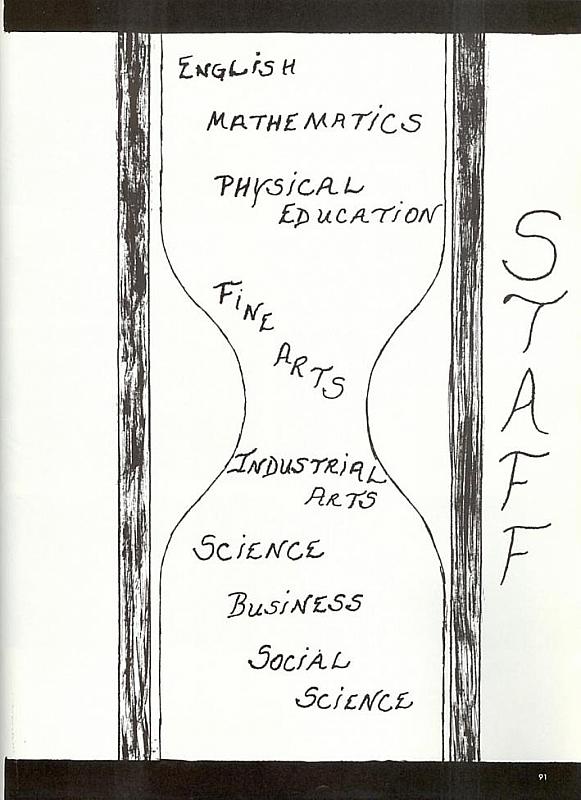 ENGLISH
MATHEMATICS
PHYSICAL
EDUCATION
FINE
ARTS
INDUSTRIAL
ARTS
SCIENCE
BUSINESS
SOCIAL
SCIENCE
STAFF
91